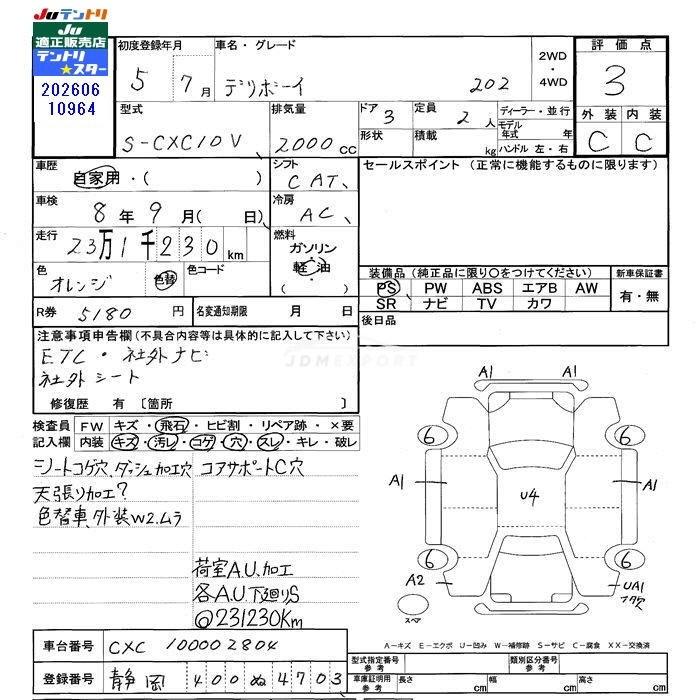 Juテントリ
Ju
適正販売店
テントリ
★スター
202606
10964
初度登録年月 車名・グレード 2WD・4WD 評価点
5 7月 デリボーイ 202 3
型式 排気量 ドア 3 定員 2人 ディーラー・並行 外装 内装
S-CXC10V、 2000cc 形状 積載 kg モデル年式 年 ハンドル 左・右 C C
車歴 自家用・( ) シフト CAT、 セールスポイント (正常に機能するものに限ります)
車検 8年9月( 日) 冷房 AC、
走行 23万1千230km 燃料 ガソリン・軽油・( )
色 オレンジ 色替 色コード 装備品(純正品に限り○をつけてください) 新車保証書
PS PW ABS エアB AW 有・無
SR ナビ TV カワ
R券 5180円 名変通知期限 月 日 後日品
注意事項申告欄(不具合内容等は具体的に記入して下さい)
ETC・社外ナビ
社外シート
JDMEXPORT
修復歴 有 〔箇所 〕
検査員 FW キズ・飛石・ヒビ割・リペア跡・×要
記入欄 内装 キズ・汚レ・コゲ・穴・スレ・キレ・破レ
シートコゲ穴、ダッシュ加工穴 コアサポートC穴
天張り加工?
色替車、外装W2.ムラ
荷室A.U.加工
各A.U.下廻りS
@231230Km
A1 A1
6 6
A1 U4 A1
6 6
A2 UA1
スペア
A-キズ E-エクボ U-凹み W-補修跡 S-サビ C-腐食 XX-交換済
車台番号 CXC 100002804 型式指定番号 参考 類別区分番号 参考
登録番号 静岡 400 ぬ 4703 車庫証明用 参考 長さ cm 幅 cm 高さ cm